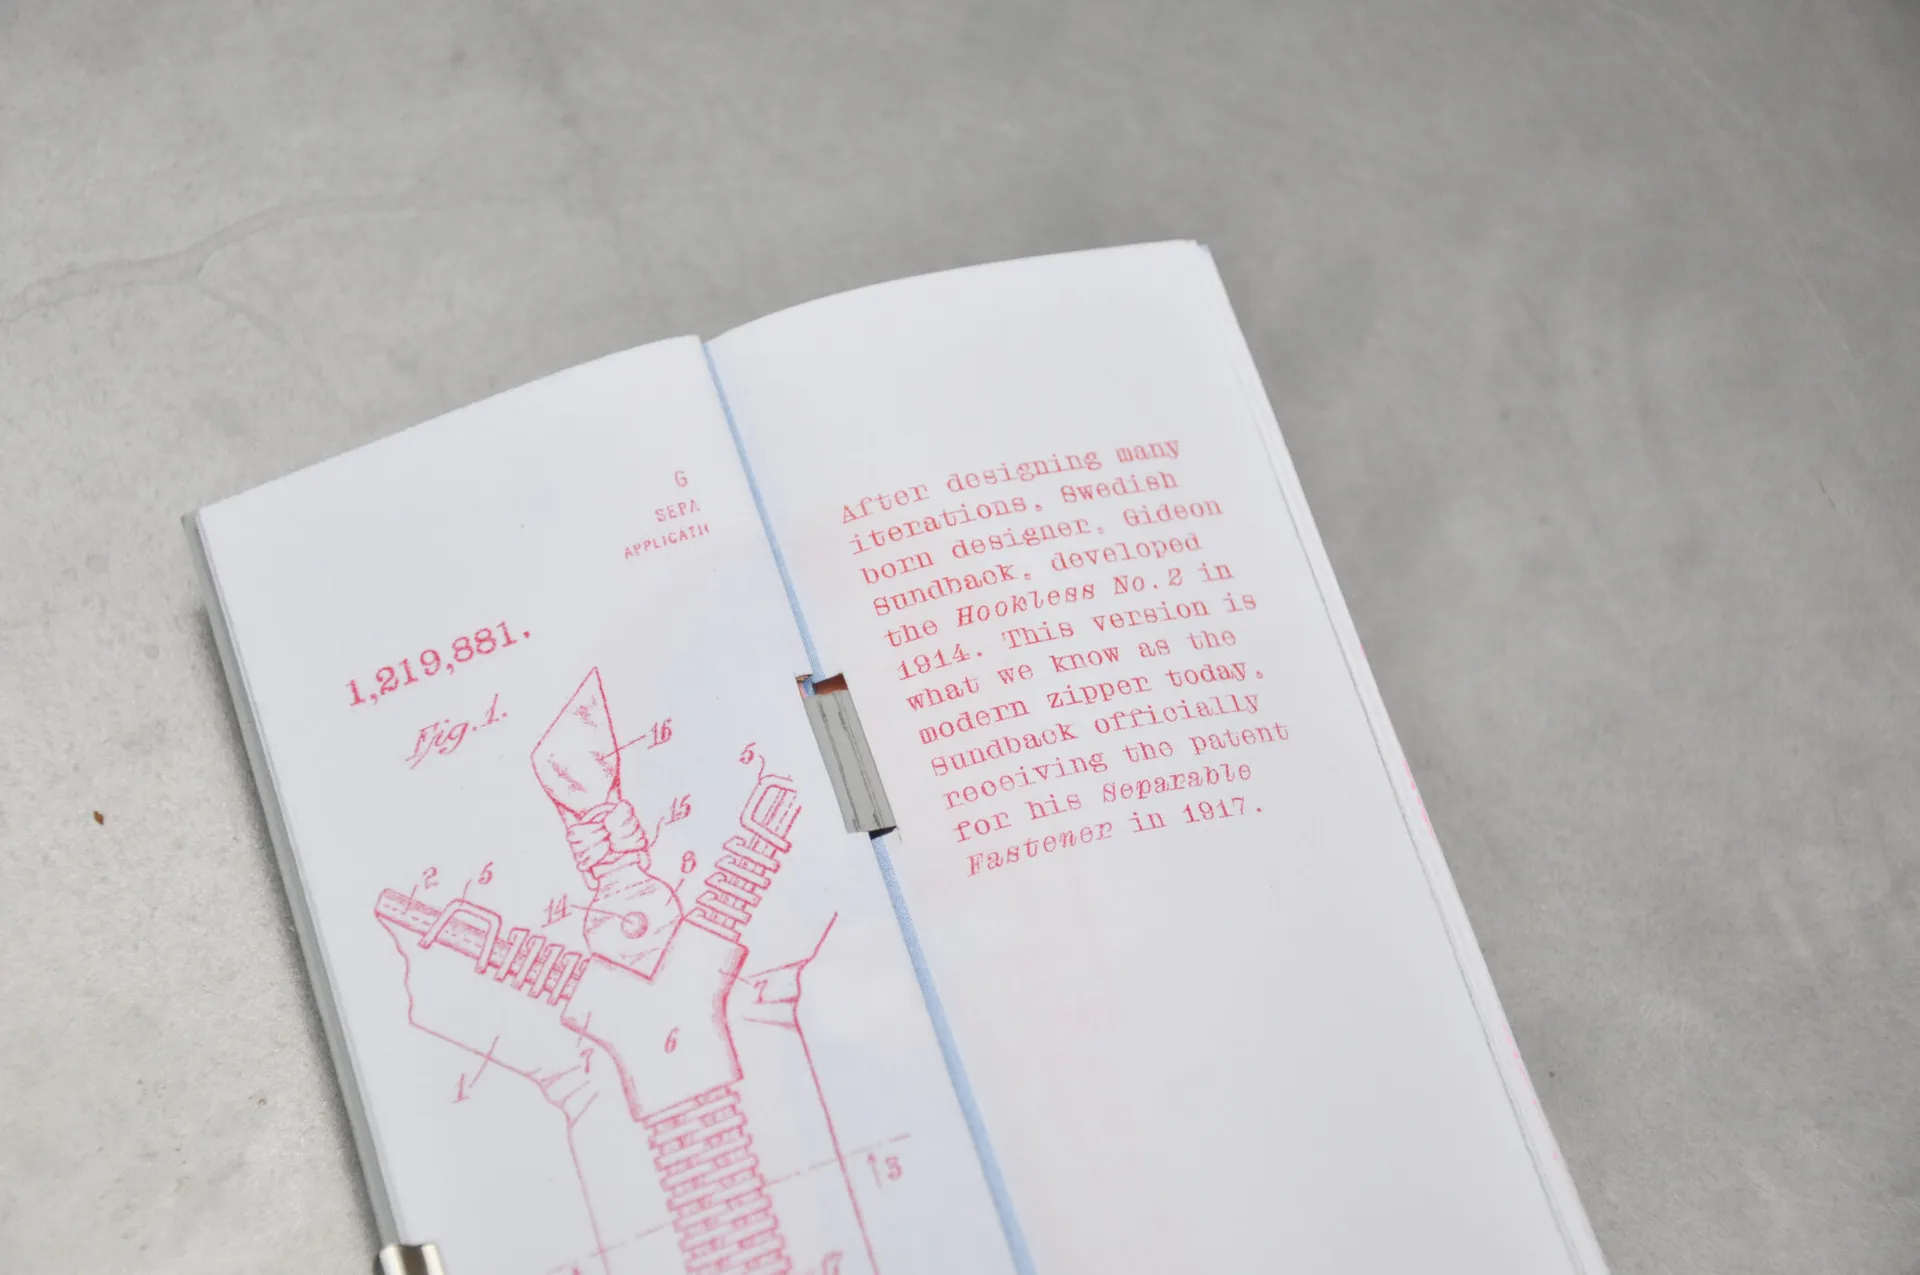 G
SEPA
APPLICATI
1,219,881.
Fig.1.
16
5
15
8
2
5
14
7
6
7
1
3
After designing many
iterations, Swedish
born designer, Gideon
Sundback, developed
the Hookless No.2 in
1914. This version is
what we know as the
modern zipper today,
Sundback officially
receiving the patent
for his Separable
Fastener in 1917.